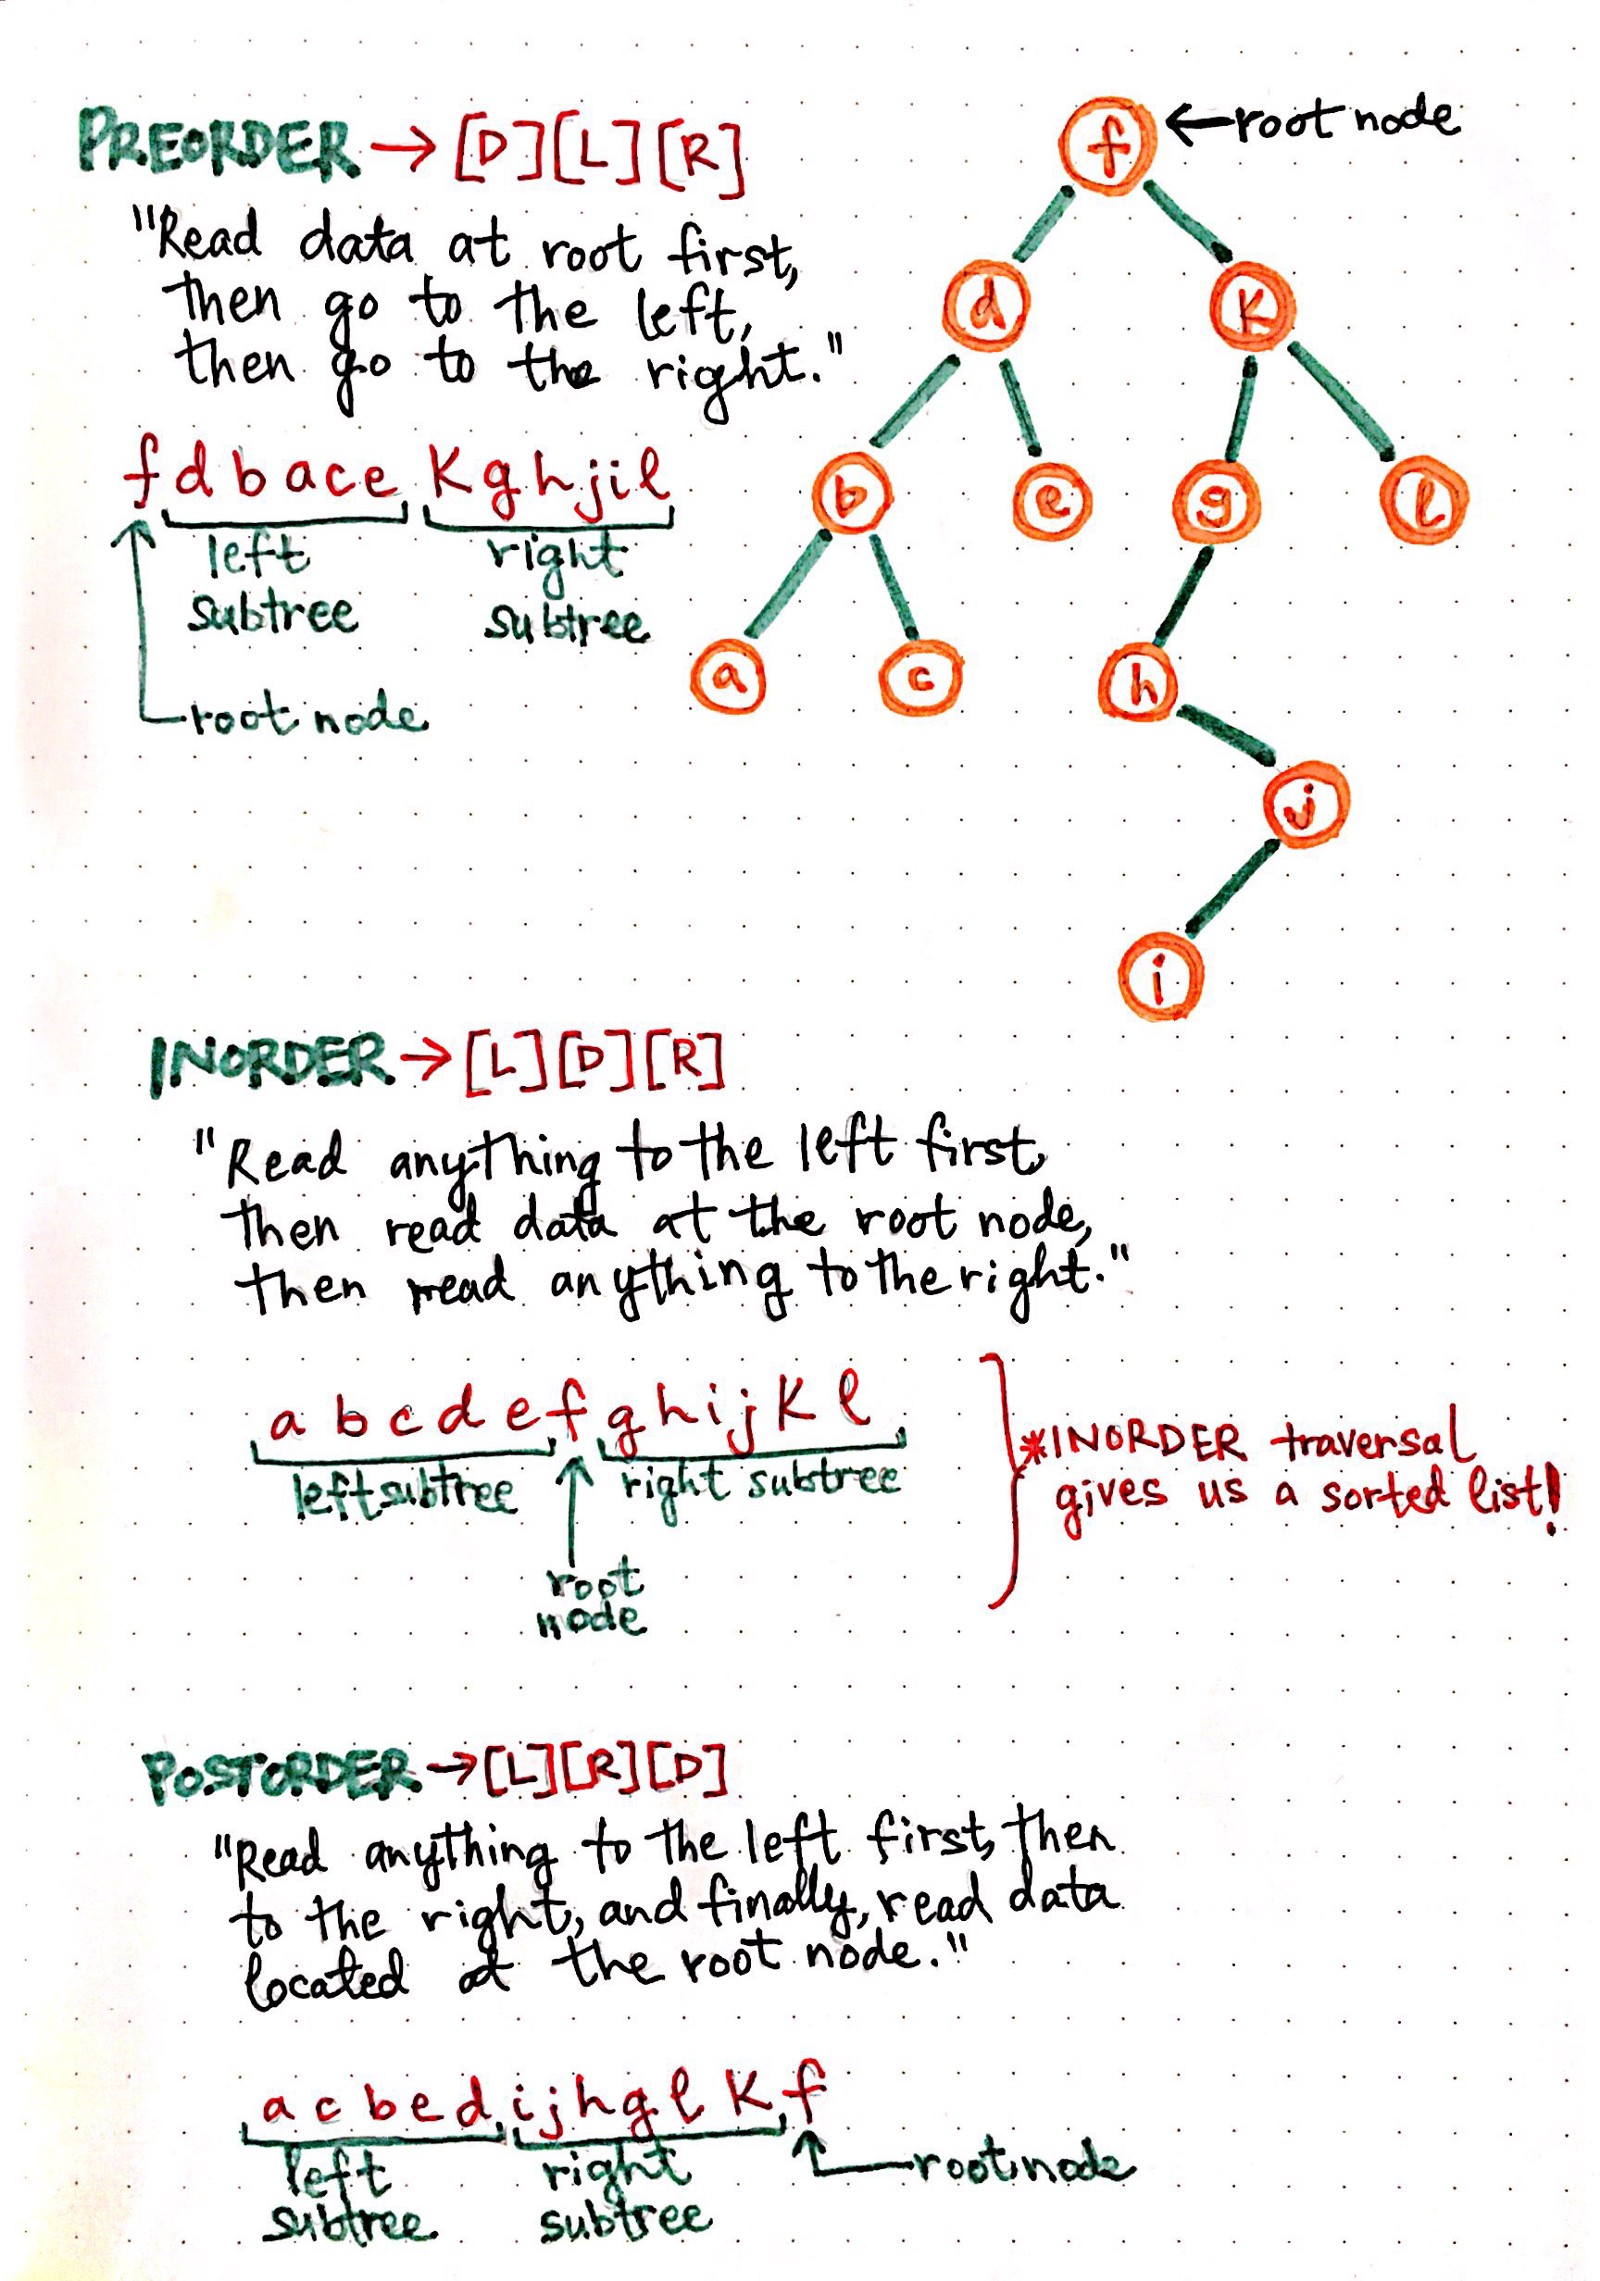 PREORDER → [D][L][R]
"Read data at root first,
then go to the left,
then go to the right."
f d b a c e K g h j i l
left subtree
right subtree
root node
f ← root node
d K
b e g l
a c h
j
i
INORDER → [L][D][R]
"Read anything to the left first,
then read data at the root node,
then read anything to the right."
a b c d e f g h i j K l
left subtree
right subtree
root
node
*INORDER traversal
gives us a sorted list!
POSTORDER → [L][R][D]
"Read anything to the left first, then
to the right, and finally, read data
located at the root node."
a c b e d i j h g l K f
left
subtree
right
subtree
root node